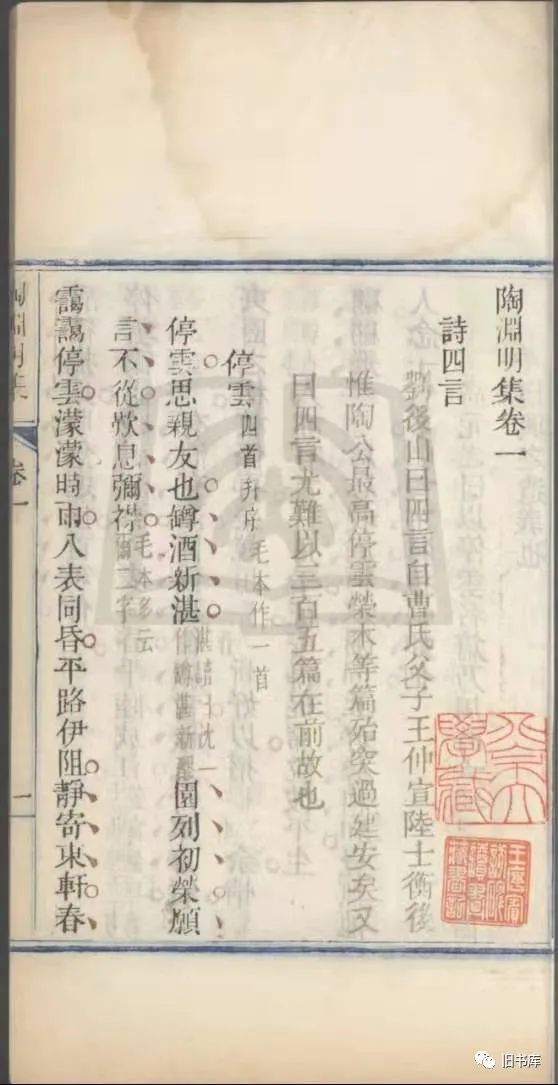 陶淵明集卷一
詩四言
劉後山曰四言自曹氏父子王仲宣陸士衡後
惟陶公最高停雲榮木等篇殆突過建安矣又
曰四言尤難以三百五篇在前故也
停雲四首并序毛本作一首
停雲思親友也罇酒新湛湛讀士沈一作罇湛新醪園列初榮願
言不從歎息彌襟毛本多云爾二字
靄靄停雲濛濛時雨八表同昏平路伊阻靜寄東軒春
陶淵明集
卷一
一
旧书库